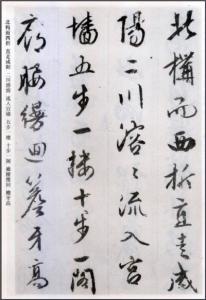 北構而西折直走咸
陽二川溶〻流入宮
墻五步一樓十步一閣
廊腰縵迴簷牙高
北構而西折 直走咸陽 二川溶溶 流入宮牆 五步一樓 十步一閣 廊腰縵回 檐牙高